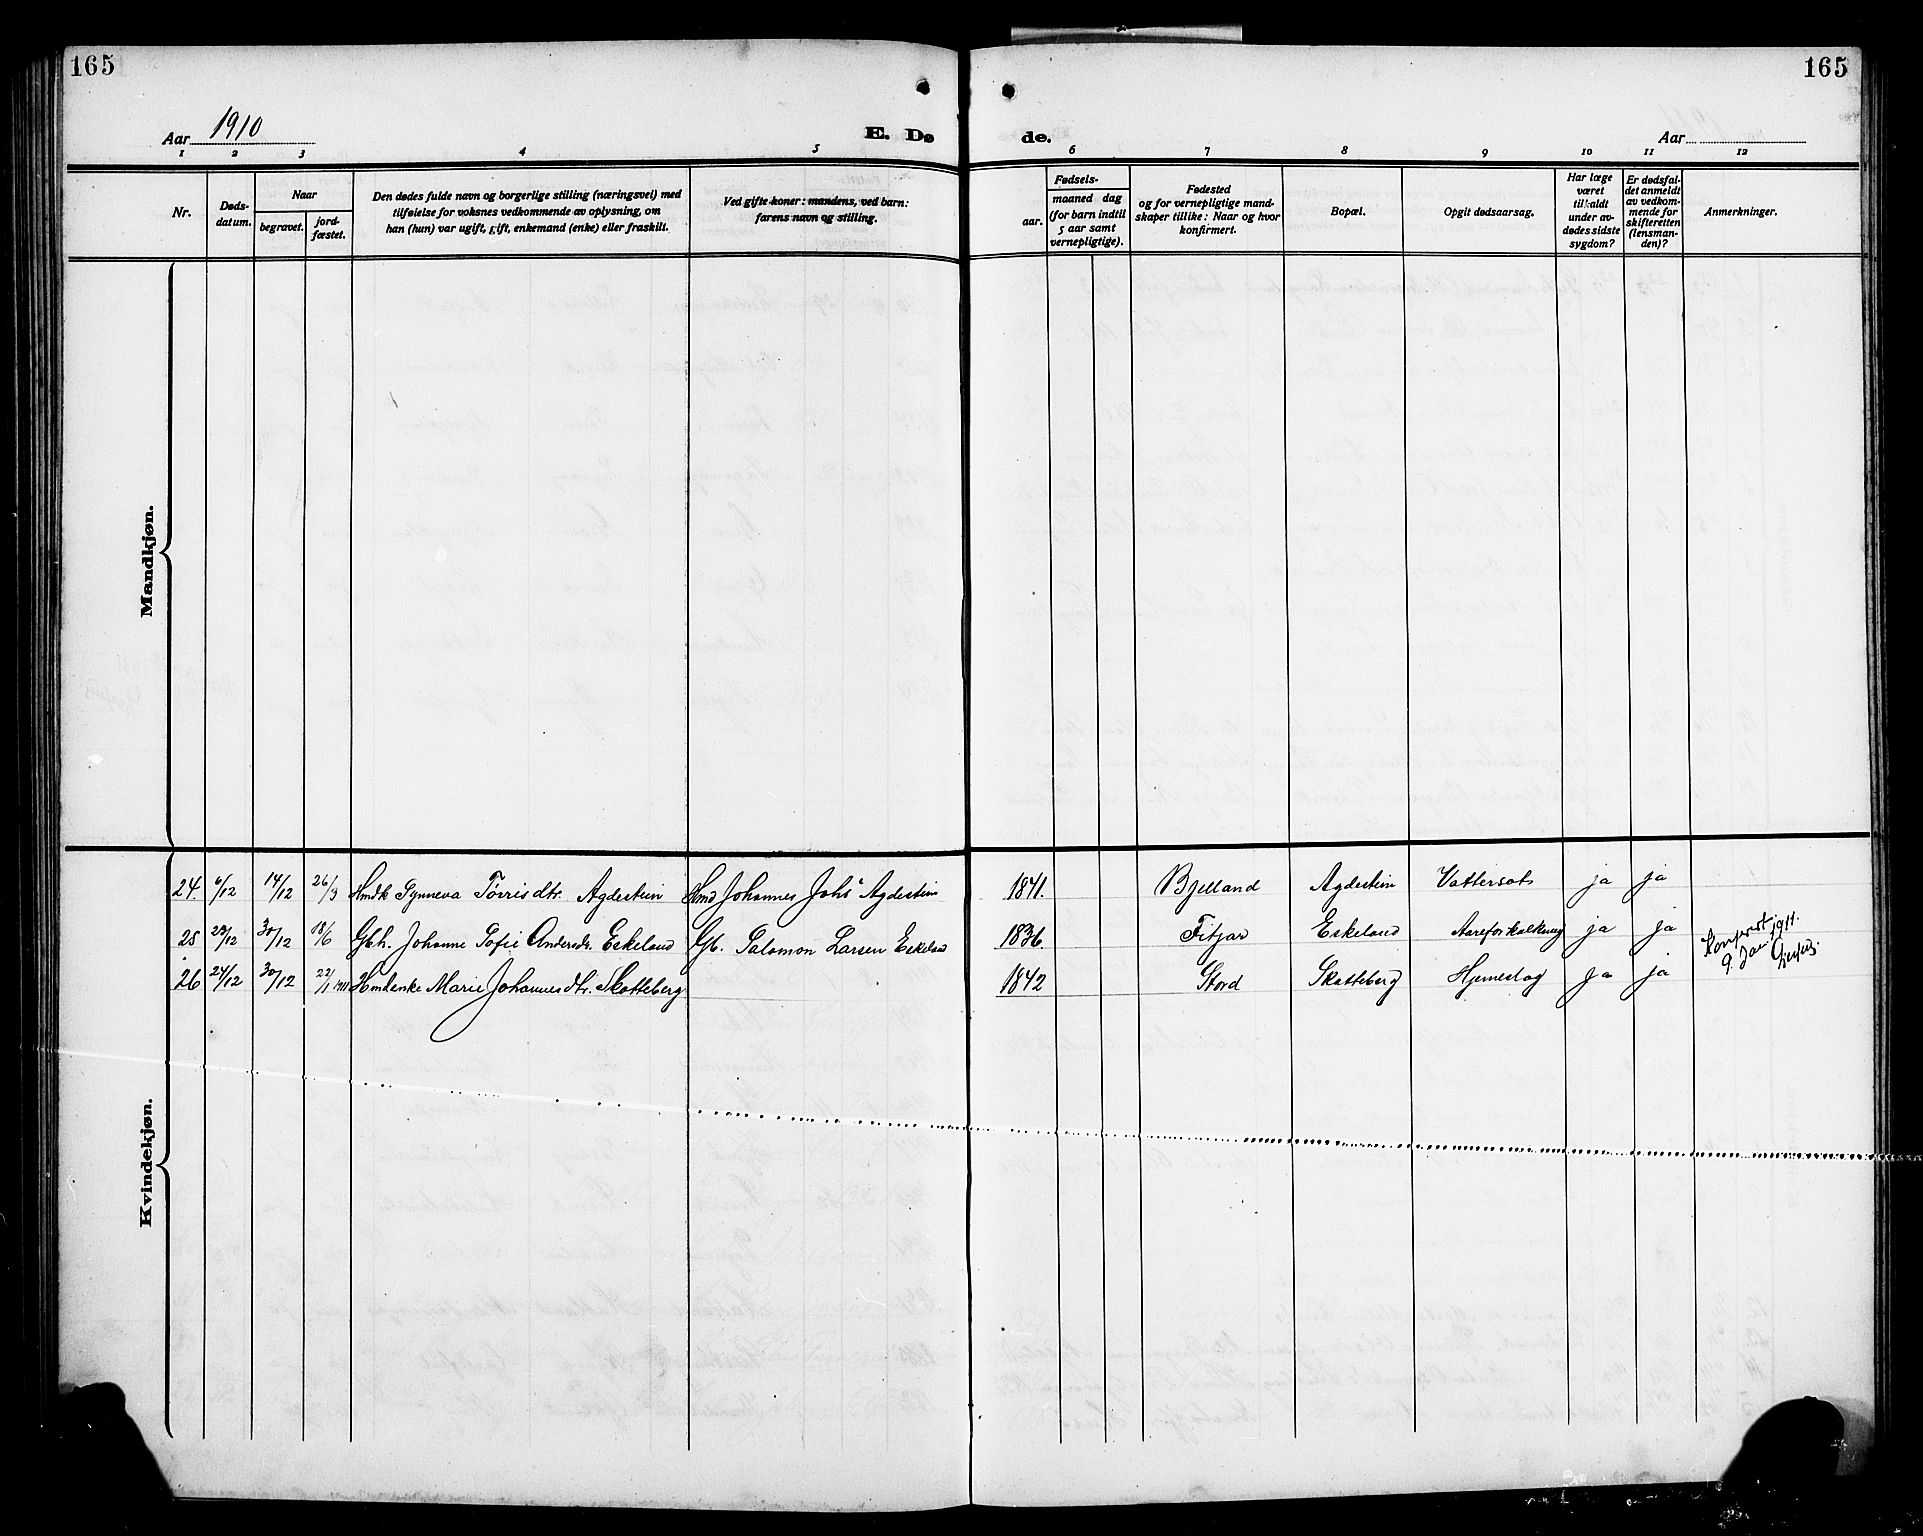 165
165
Aar 1910
E. Dø
de.
Aar
1 2 3 4 5 6 7 8 9 10 11 12
Nr.
Døds-
datum.
Naar
begravet.
jord-
fæstet.
Den dødes fulde navn og borgerlige stilling (næringsvei) med
tilføielse for voksnes vedkommende av oplysning, om
han (hun) var ugift, gift, enkemand (enke) eller fraskilt.
Ved gifte koner: mandens, ved barn:
farens navn og stilling.
Fødsels-
aar.
maaned dag
(for barn indtil
5 aar samt
vernepligtige).
Fødested
og for vernepligtige mand-
skaper tillike: Naar og hvor
konfirmert.
Bopæl.
Opgit dødsaarsag.
Har læge
været
tilkaldt
under av-
dødes sidste
sygdom?
Er dødsfal-
det anmeldt
av vedkom-
mende for
skifteretten
(lensman-
den)?
Anmerkninger.
Mandkjøn.
Kvindekjøn.
24. 6/12 14/12 26/3 Hmdk Synneva Tørrisdtr. Agdestein Hmd Johannes Johs. Agdestein 1841. Bjelland Agdestein Vattersot ja ja
25 23/12 30/12 18/6 Gbh. Johanne Sofie Andersdr. Eskeland Gb. Salomon Larsen Eskeland 1836. Fitjar Eskeland Aareforkalkning ja ja
26 24/12 30/12 22/1 1911 Hmdenke Marie Johannesdtr. Skotteberg 1842 Stord Skotteberg Hjerneslag ja ja
9. Jan. 1911.